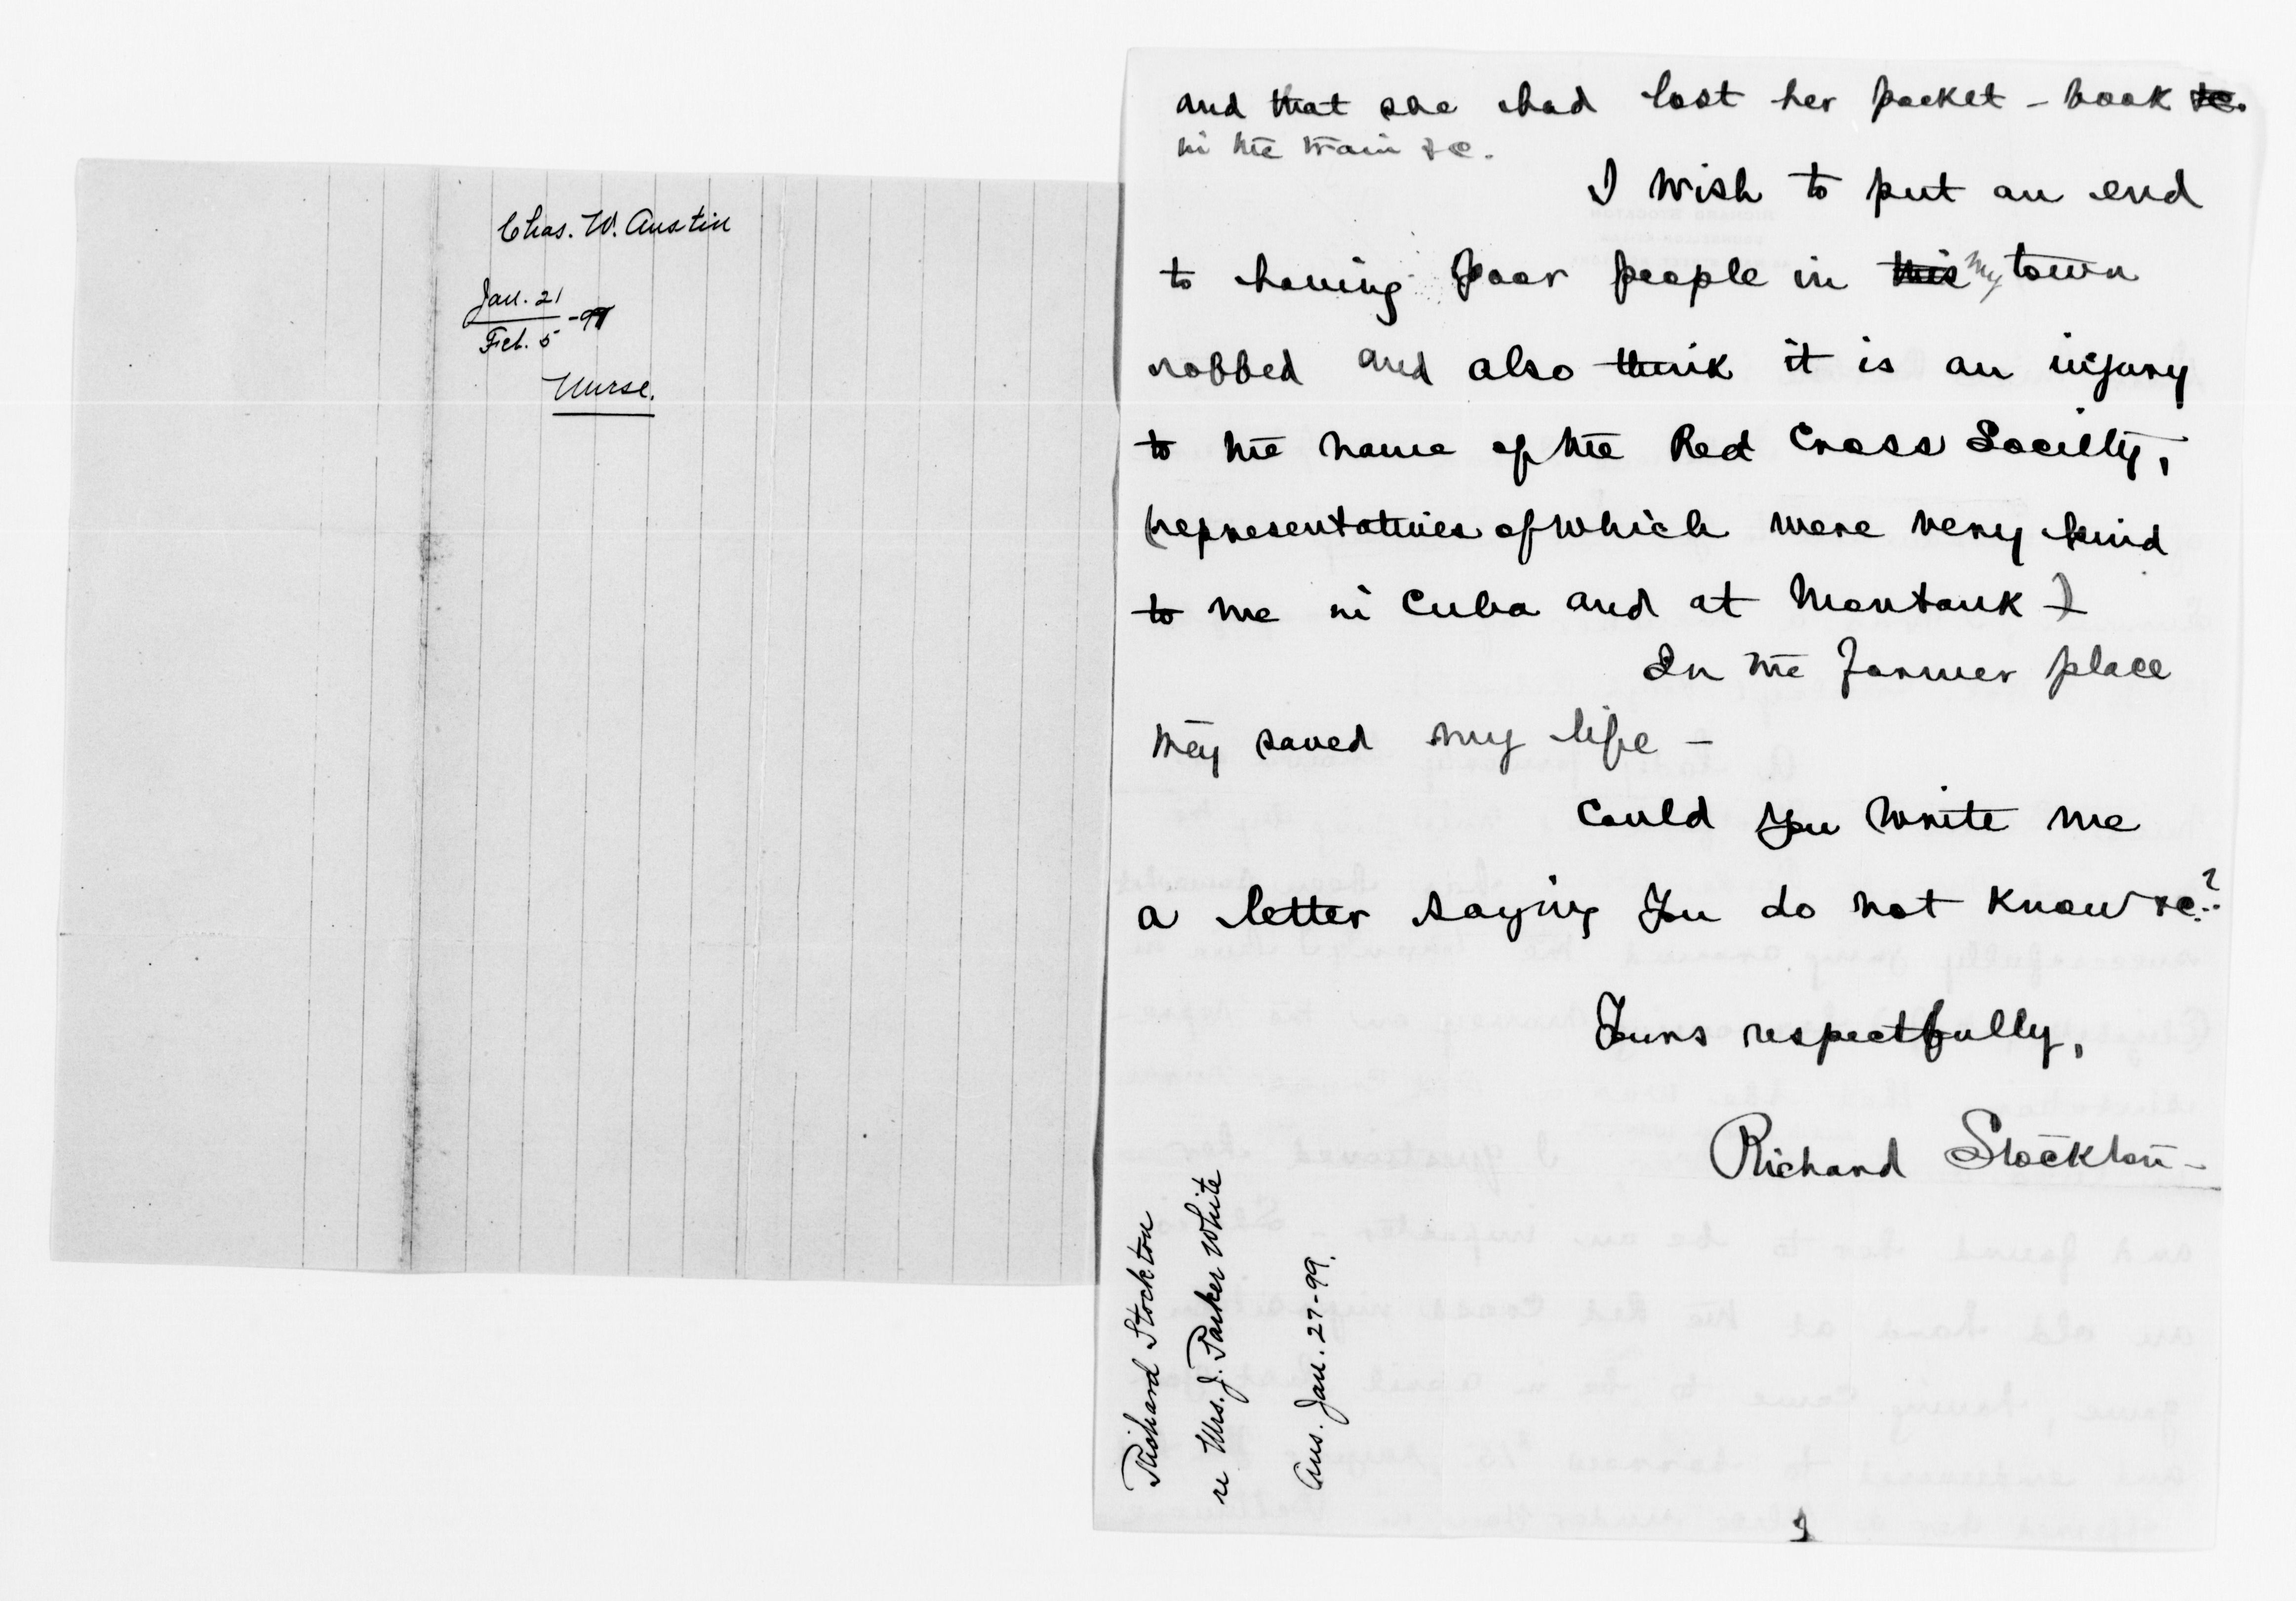 Chas. W. Austin
Jan. 21
Feb. 5 -99
Nurse.
and that she had lost her pocket-book &c.
in the train &c.
I wish to put an end
to having poor people in this my town
robbed and also think it is an injury
to the name of the Red Cross Society,
(representatives of which were very kind
to me in Cuba and at Montauk)
In the former place
they saved my life -
Could you write me
a letter saying you do not know &c.?
Yours respectfully,
Richard Stockton -
Richard Stockton
re Mrs. J. Parker White
Ans. Jan. 27-99.